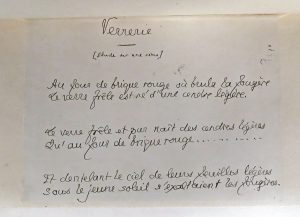 Verrerie
(Étude sur une rime)
Au four de brique rouge où brula la fougère
Le verre frêle est né d'une cendre légère.
Le verre frêle et pur naît des cendres légères
Qu'au four de brique rouge..........
Et dentelant le ciel de leurs feuilles légères
Sous le jeune soleil s'exaltaient les fougères.